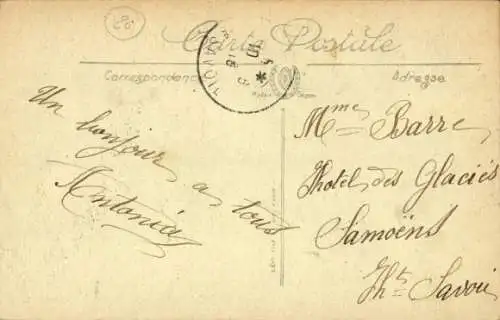 Carte Postale
Correspondance
Adresse
Un bonjour
a tous
Antonia
Mme Barre
Hotel des Glaciés
Samoëns
Hte Savoie